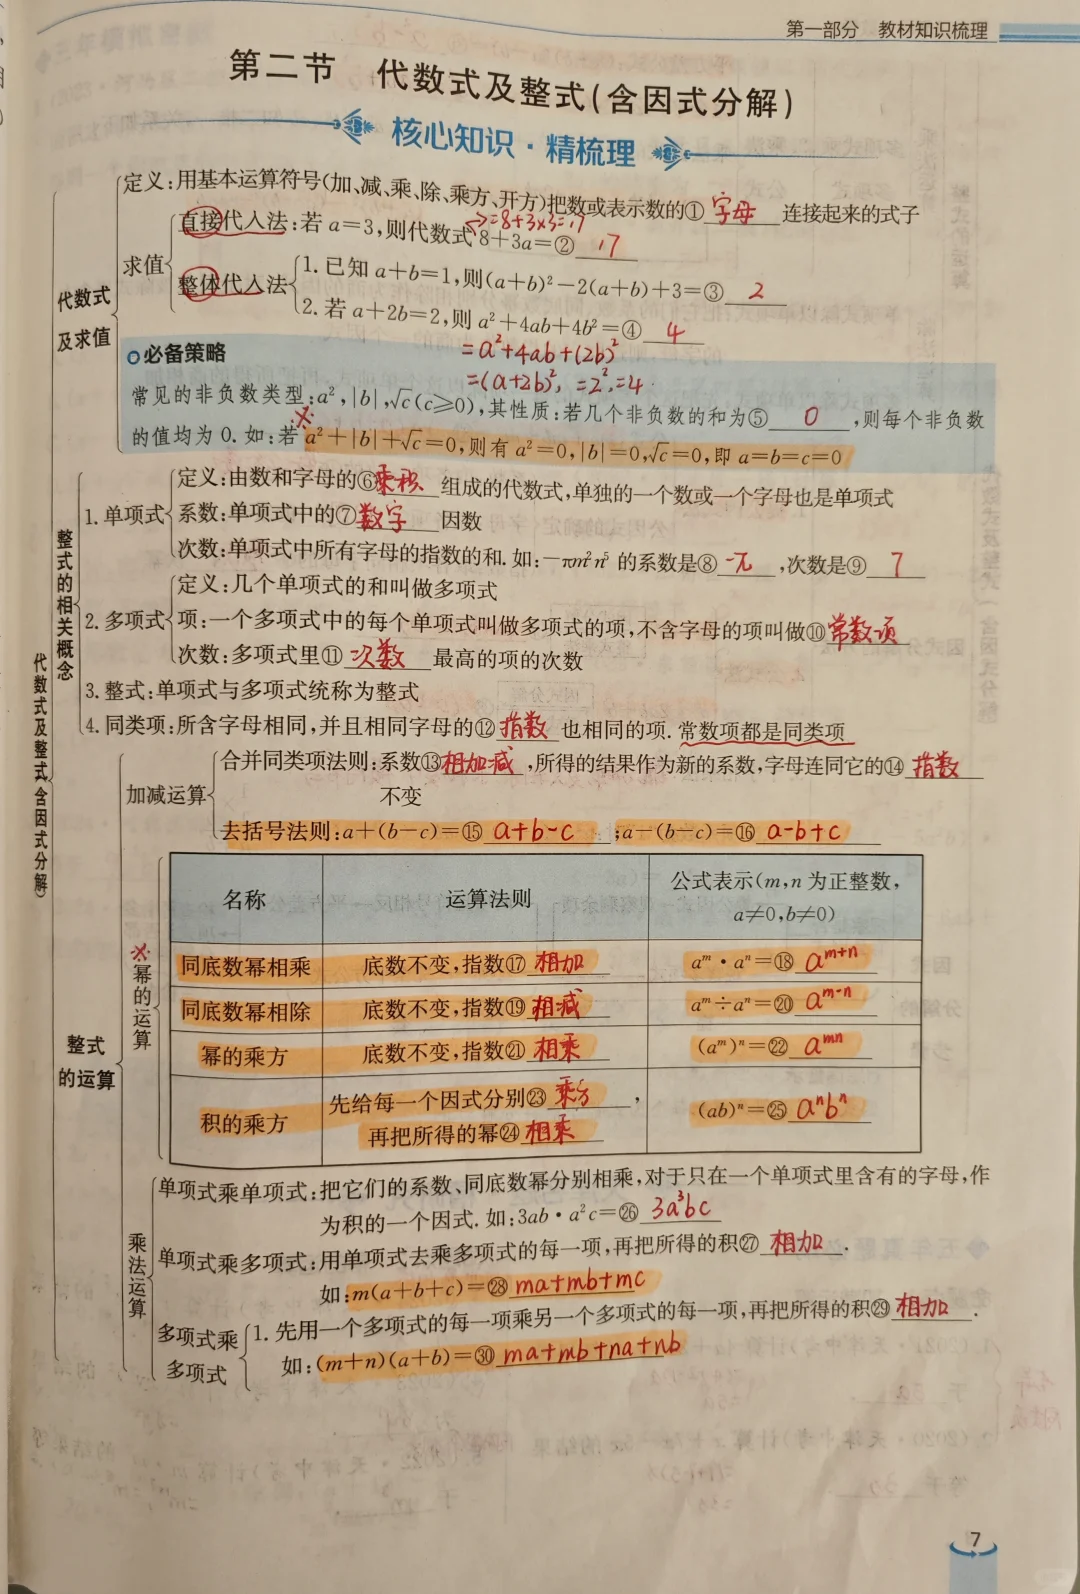 第一部分 教材知识梳理
第二节 代数式及整式(含因式分解)
核心知识·精梳理
定义:用基本运算符号(加、减、乘、除、乘方、开方)把数或表示数的① 字母 连接起来的式子
=8+3×3=17
直接代入法:若 a=3,则代数式 8+3a=② 17
求值
整体代入法
1. 已知 a+b=1,则(a+b)²-2(a+b)+3=③ 2
2. 若 a+2b=2,则 a²+4ab+4b²=④ 4
代数式
及求值
=a²+4ab+(2b)²
=(a+2b)²,=2²,=4.
必备策略
常见的非负数类型:a²,|b|,√c(c≥0),其性质:若几个非负数的和为⑤ 0 ,则每个非负数
的值均为 0. 如:若 a²+|b|+√c=0,则有 a²=0,|b|=0,√c=0,即 a=b=c=0
代数式及整式(含因式分解)
整式的相关概念
1. 单项式
定义:由数和字母的⑥乘积 组成的代数式,单独的一个数或一个字母也是单项式
系数:单项式中的⑦数字 因数
次数:单项式中所有字母的指数的和. 如:-πm²n⁵ 的系数是⑧ -π ,次数是⑨ 7
2. 多项式
定义:几个单项式的和叫做多项式
项:一个多项式中的每个单项式叫做多项式的项,不含字母的项叫做⑩常数项
次数:多项式里⑪ 次数 最高的项的次数
3. 整式:单项式与多项式统称为整式
4. 同类项:所含字母相同,并且相同字母的⑫ 指数 也相同的项. 常数项都是同类项
整式
的运算
加减运算
合并同类项法则:系数⑬相加减 ,所得的结果作为新的系数,字母连同它的⑭ 指数
不变
去括号法则:a+(b-c)=⑮ a+b-c ;a-(b-c)=⑯ a-b+c
※幂的运算
名称 运算法则 公式表示(m,n 为正整数,
a≠0,b≠0)
同底数幂相乘 底数不变,指数⑰ 相加 aᵐ·aⁿ=⑱ aᵐ⁺ⁿ
同底数幂相除 底数不变,指数⑲ 相减 aᵐ÷aⁿ=⑳ aᵐ⁻ⁿ
幂的乘方 底数不变,指数㉑ 相乘 (aᵐ)ⁿ=㉒ aᵐⁿ
积的乘方 先给每一个因式分别㉓ 乘方 , (ab)ⁿ=㉕ aⁿbⁿ
再把所得的幂㉔ 相乘
乘法运算
单项式乘单项式:把它们的系数、同底数幂分别相乘,对于只在一个单项式里含有的字母,作
为积的一个因式. 如:3ab·a²c=㉖ 3a³bc
单项式乘多项式:用单项式去乘多项式的每一项,再把所得的积㉗ 相加 .
如:m(a+b+c)=㉘ ma+mb+mc
多项式乘
多项式
1. 先用一个多项式的每一项乘另一个多项式的每一项,再把所得的积㉙ 相加 .
如:(m+n)(a+b)=㉚ ma+mb+na+nb
7